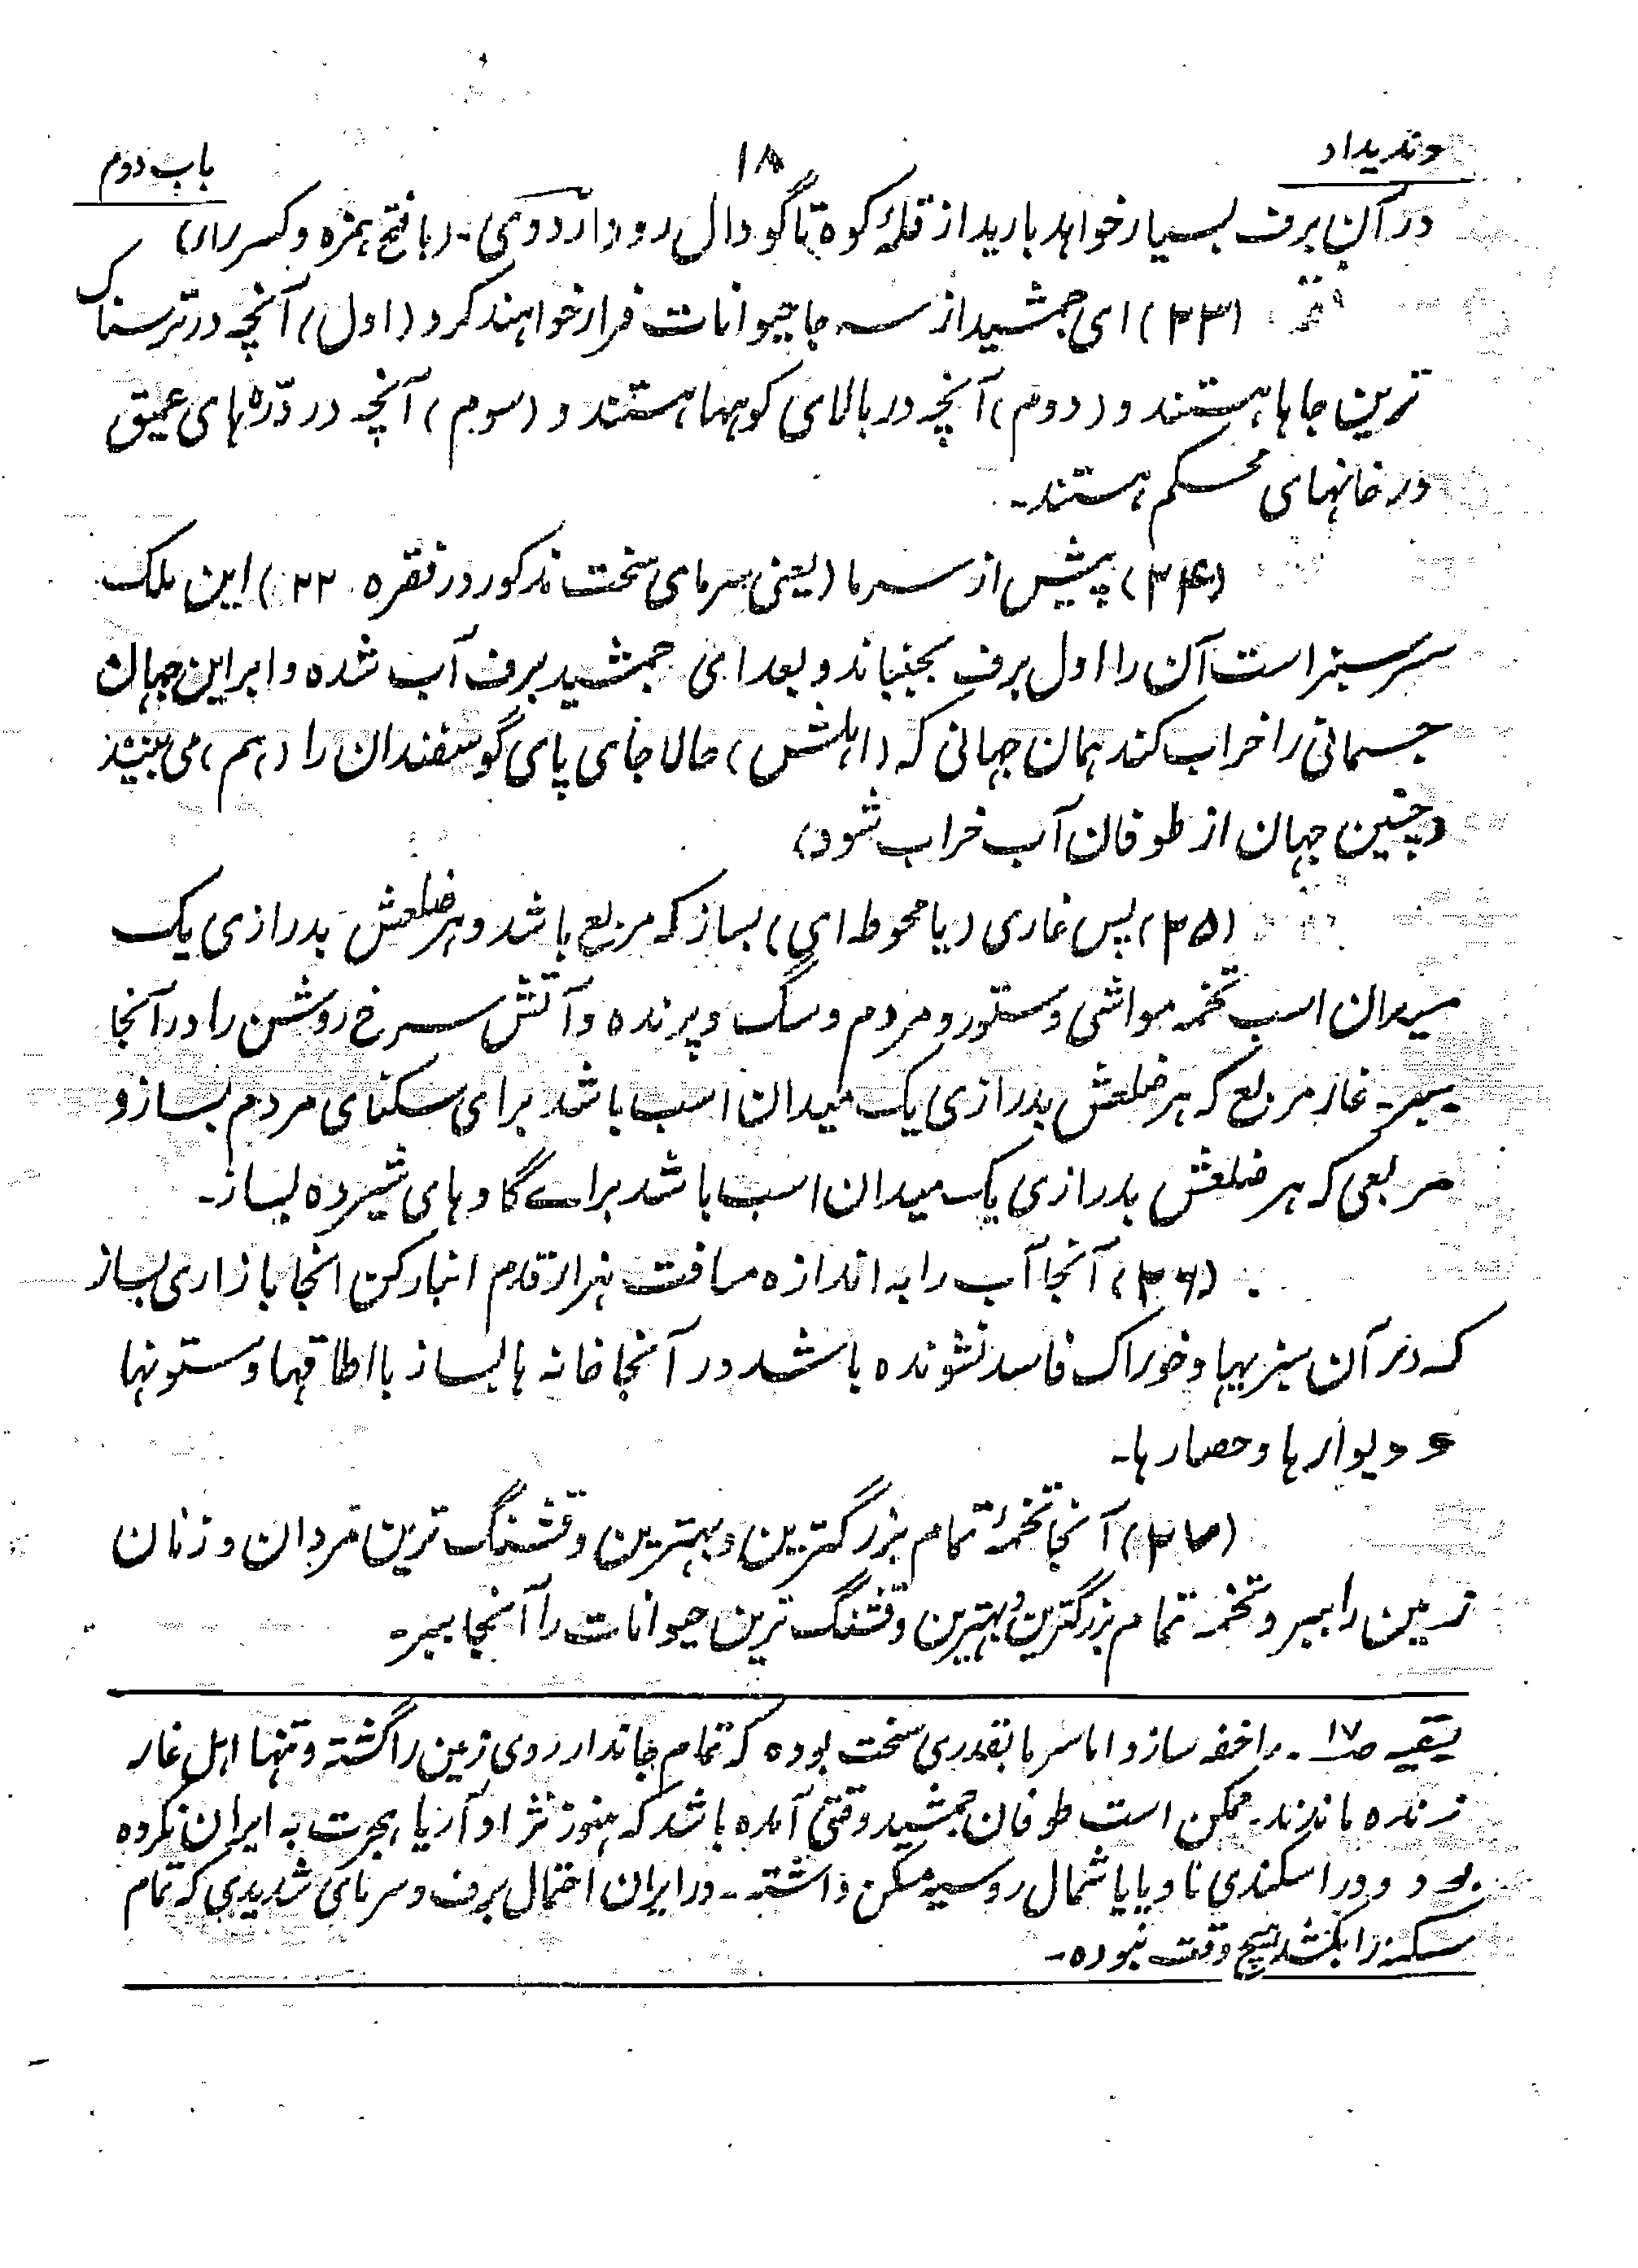 وندیداد
۱۸
باب دوم
در آن برف بسیار خواهد بارید از قلهٔ کوه تا گودال رود اردوی - (با فتح همزه و کسر راء)
(۲۳) ای جمشید از سه جا حیوانات فرار خواهند کرد (اول) آنچه در ترسناک
ترین جاها هستند و (دوم) آنچه در بالای کوهها هستند و (سوم) آنچه در درّه های عمیق
در خانهای محکم هستند -
(۲۴) پیش از سرما (یعنی سرمای سخت مذکور در فقره ۲۲) این ملک
سرسبز است آن را اول برف بجنباند و بعد ای جمشید برف آب شده و ابر این جهان
جسمانی را خراب کند همان جهانی که (اهلش) حالا جای پای گوسفندان را (هم) می بینند
(چنین جهان از طوفان آب خراب شود)
(۲۵) پس غاری (یا محوطه ای) بساز که مربع باشد و هر ضلعش بدرازی یک
میدان اسب تخمه مواشی و ستور و مردم و سگ و پرنده و آتش سرخ روشن را در آنجا
ببر - غار مربع که هر ضلعش بدرازی یک میدان اسب باشد برای سکنای مردم بساز و
مربعی که هر ضلعش بدرازی یک میدان اسب باشد برای گاوهای شیرده بساز -
(۲۶) آنجا آب را به اندازه مسافت هزار قدم انبار کن انجا بازاری بساز
که در آن سبزیها و خوراک فاسد نشونده باشد در آنجا خانه ها بساز با اطاقها و ستونها
و دیوارها و حصارها -
(۲۷) آنجا تخمهٔ تمام بزرگترین و بهترین و قشنگ ترین مردان و زنان
زمین را ببر و تخمه تمام بزرگترین و بهترین و قشنگ ترین حیوانات را آنجا ببر -
بقیه صـ ۱۷ - را خفه سازد اما سرما بقدری سخت بوده که تمام جاندار روی زمین را کشته و تنها اهل غار
زنده ماندند - ممکن است طوفان جمشید وقتی آمده باشد که هنوز نژاد آریا هجرت به ایران نکرده
بود و در اسکندی ناویا یا شمال روسیه مسکن داشته - در ایران احتمال برف و سرمای شدیدی که تمام
سکنه را بکشد هیچ وقت نبوده -